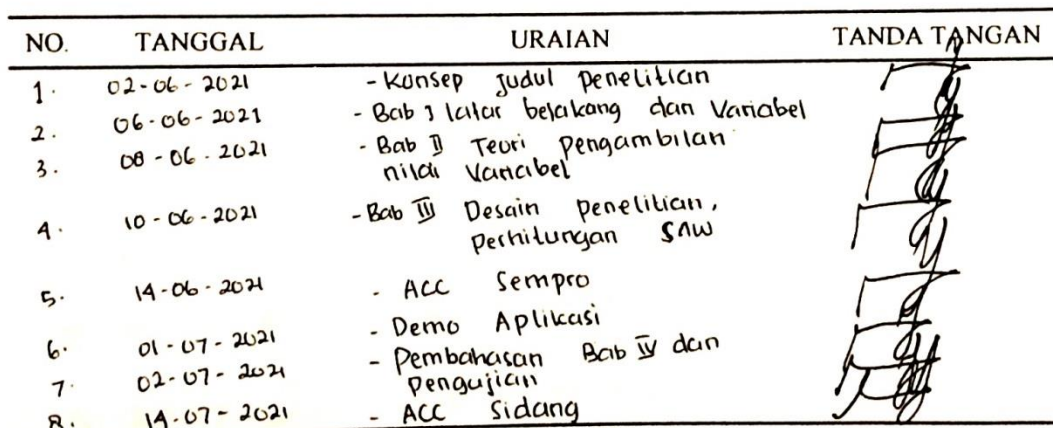 NO. TANGGAL URAIAN TANDA TANGAN
1. 02-06-2021 - Konsep Judul Penelitian
2. 06-06-2021 - Bab I latar belakang dan Variabel
3. 08-06-2021 - Bab II Teori Pengambilan
nilai Variabel
4. 10-06-2021 - Bab III Desain Penelitian,
Perhitungan SAW
5. 14-06-2021 - ACC Sempro
6. 01-07-2021 - Demo Aplikasi
7. 02-07-2021 - Pembahasan Bab IV dan
Pengujian
8. 14-07-2021 - ACC Sidang